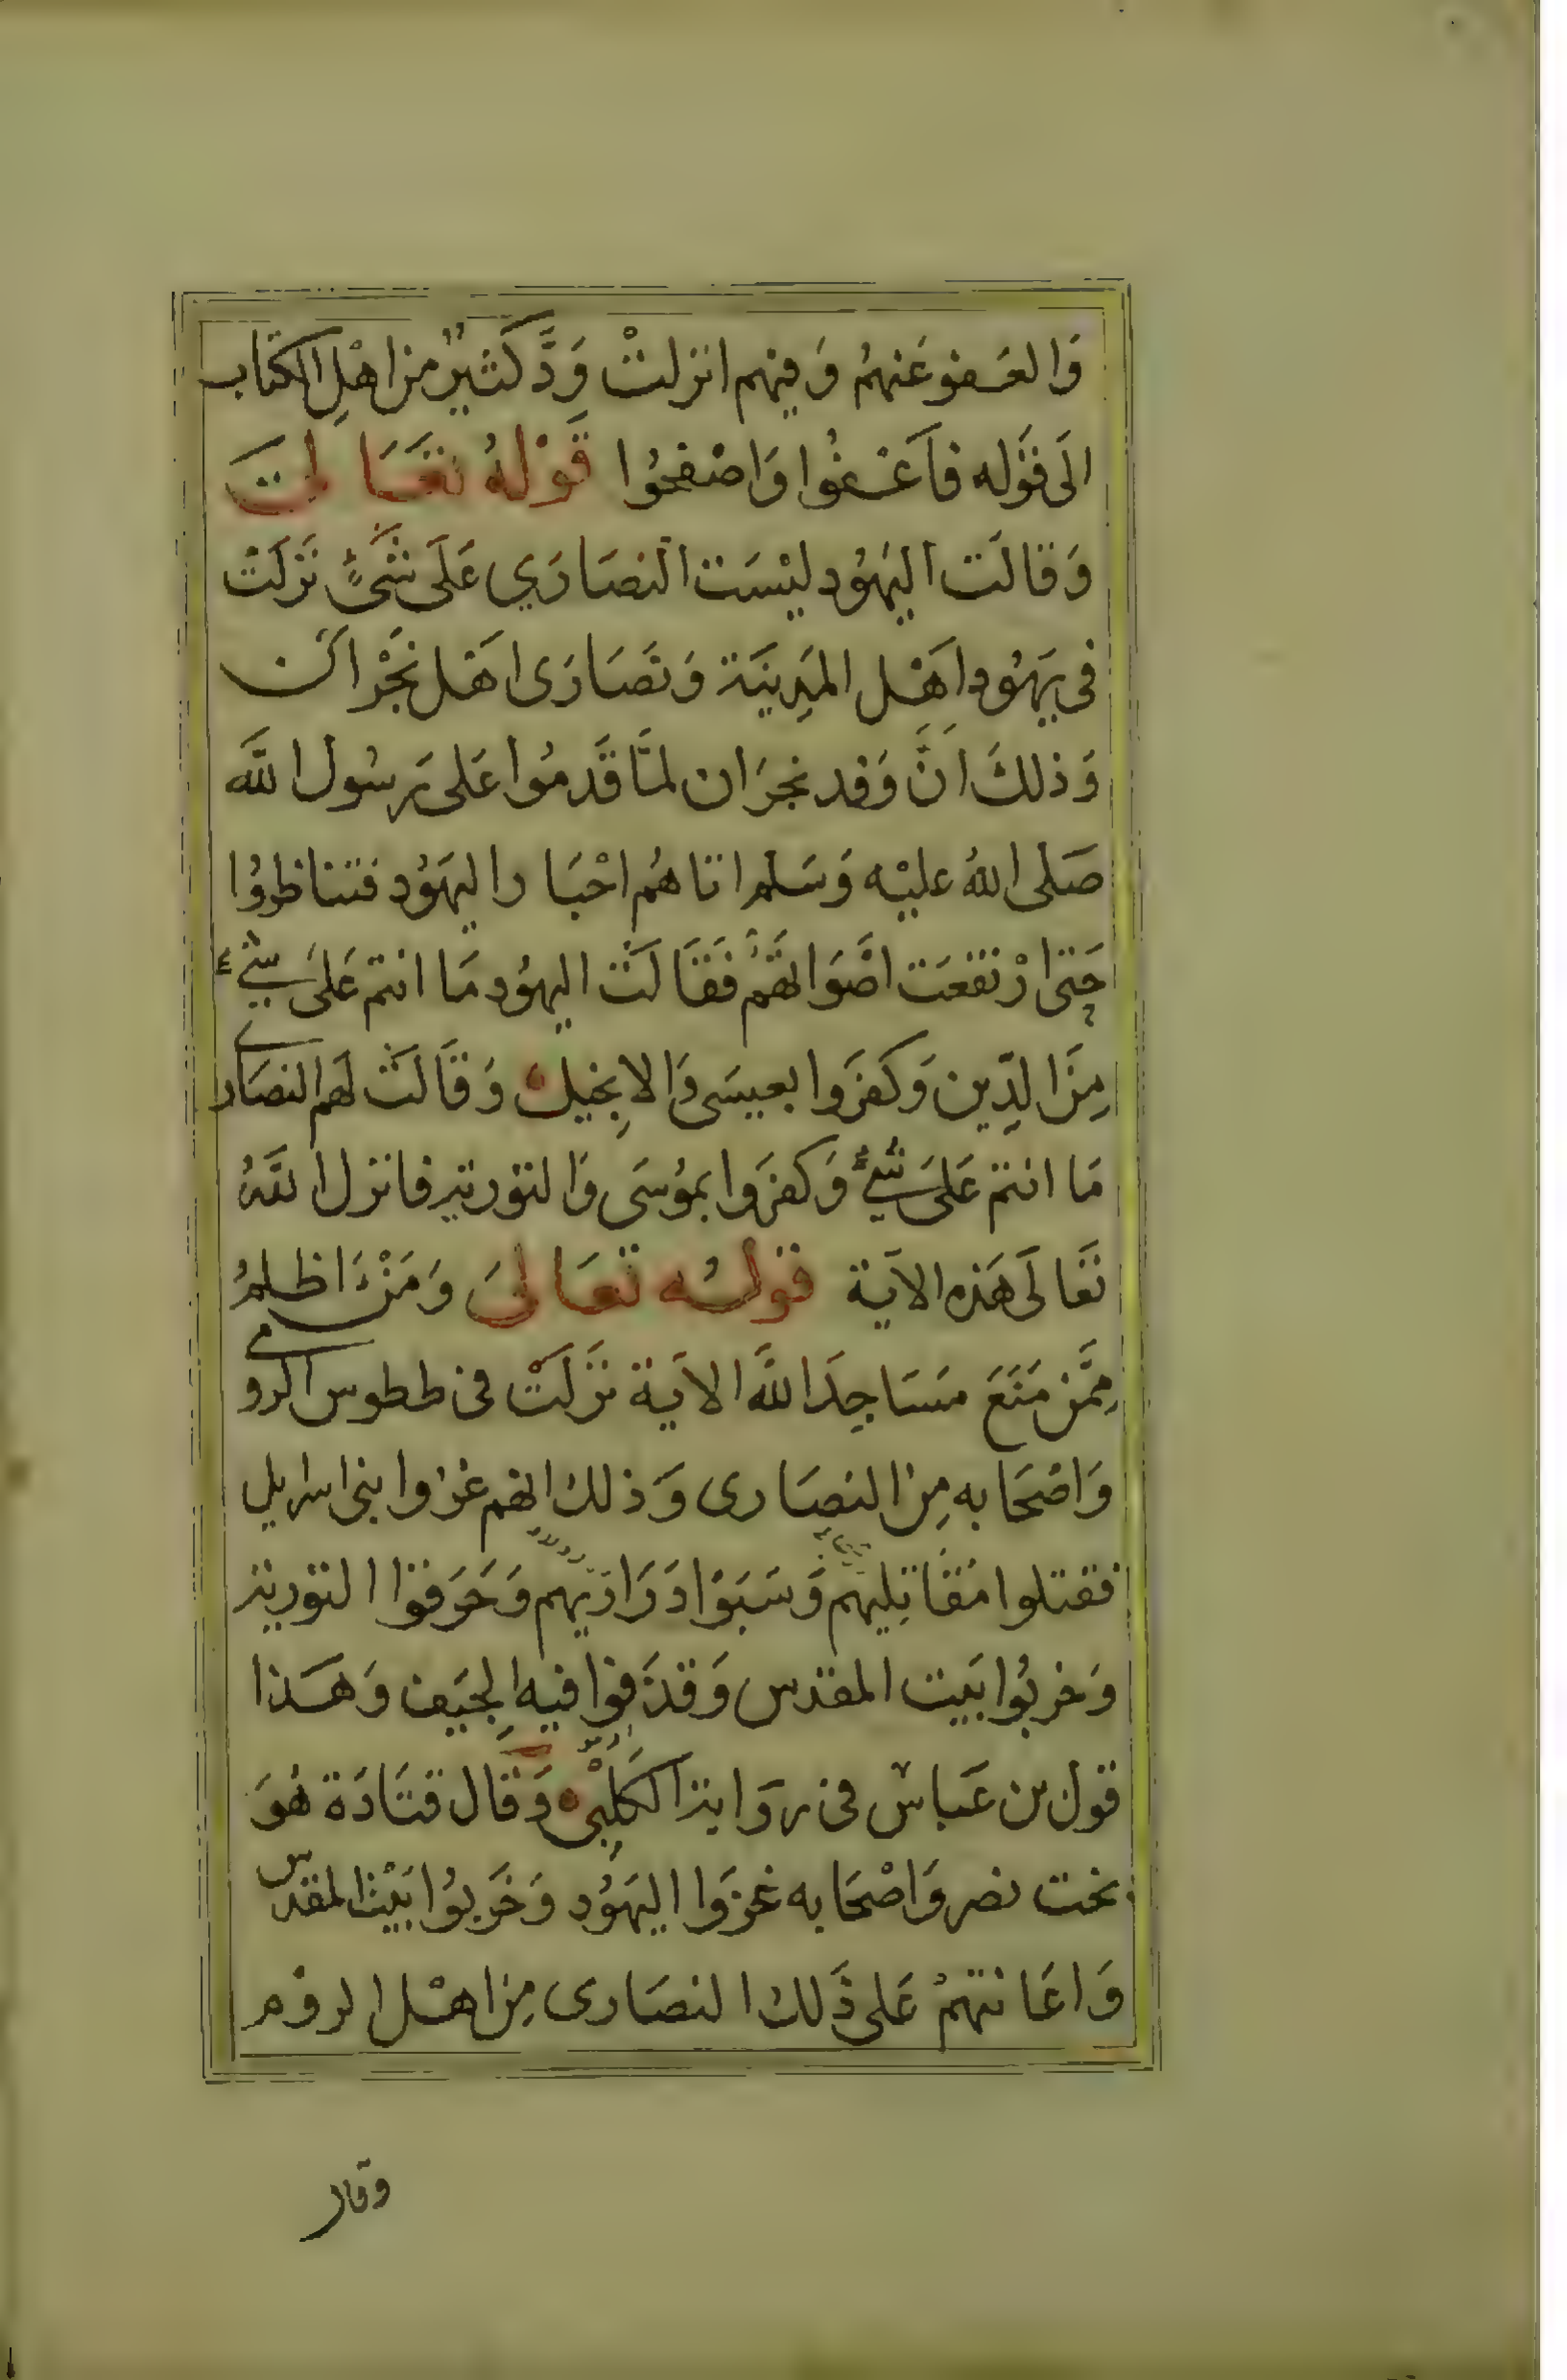 وَالعَفو عَنهُم وَفيهم انزلتْ وَدَّ كَثيرٌ من اهْلِ الكتاب
الَى قَوله فاَعْفُوا وَاصْفحُوا قَوْلهُ تَعَالىَ
وَقالَت اليهُود ليْسَت النصَارَي عَلَى شَىءٍ نَزلَتْ
فى يهُود اهْل المَدِينَة وَنصَارَى اهْل نَجْران
وَذلكَ انَّ وَفد نجرَان لمَّا قَدمُوا عَلى رَسُول اللَّه
صَلى اللهُ عليْه وَسَلم اتاهُم احْبَار اليهَوُد فتناظروُا
حَتى ارْتفعَت اصْوَاتهُم فَقَالَتْ اليهوُد مَا انتم عَلىَ شيْء
مِنَ الدِّين وَكفَروا بعيسَى وَالابِخيل وَقَالَتْ لهَم النصَارى
مَا انتم عَلىَ شيْءٍ وَكفَروا بموُسَى وَالتوْرية فانزل اللَّهُ
تَعَالَى هَذه الآيَة قولُه تعَالىَ وَمَنْ اَظلمُ
مِمَّن مَنَعَ مَسَاجِدَ اللَّه الآيَة نَزَلَتْ فى ططوس الرومي
وَاصْحَابه مِن النصَارى وَذلك انهم غزوا بنى اسرايل
فقتلوا مُقاتِليهم وَسَبَوْا دَرَارَيهم وَحَرَفوْا التورية
وَخربُوا بَيت المقدس وَقذَفوا فيه الِجيَف وَهَذا
قول بن عَباسْ فى روَاية الكَلِبْى وَقال قتَادَة هُوَ
بخت نصر وَاصْحَابه غزَوا اليهَوُد وَخَربوُا بَيْت المقدس
وَاعَانتهمْ عَلى ذَلك النصَارى مِن اهْل الروْم
وقال